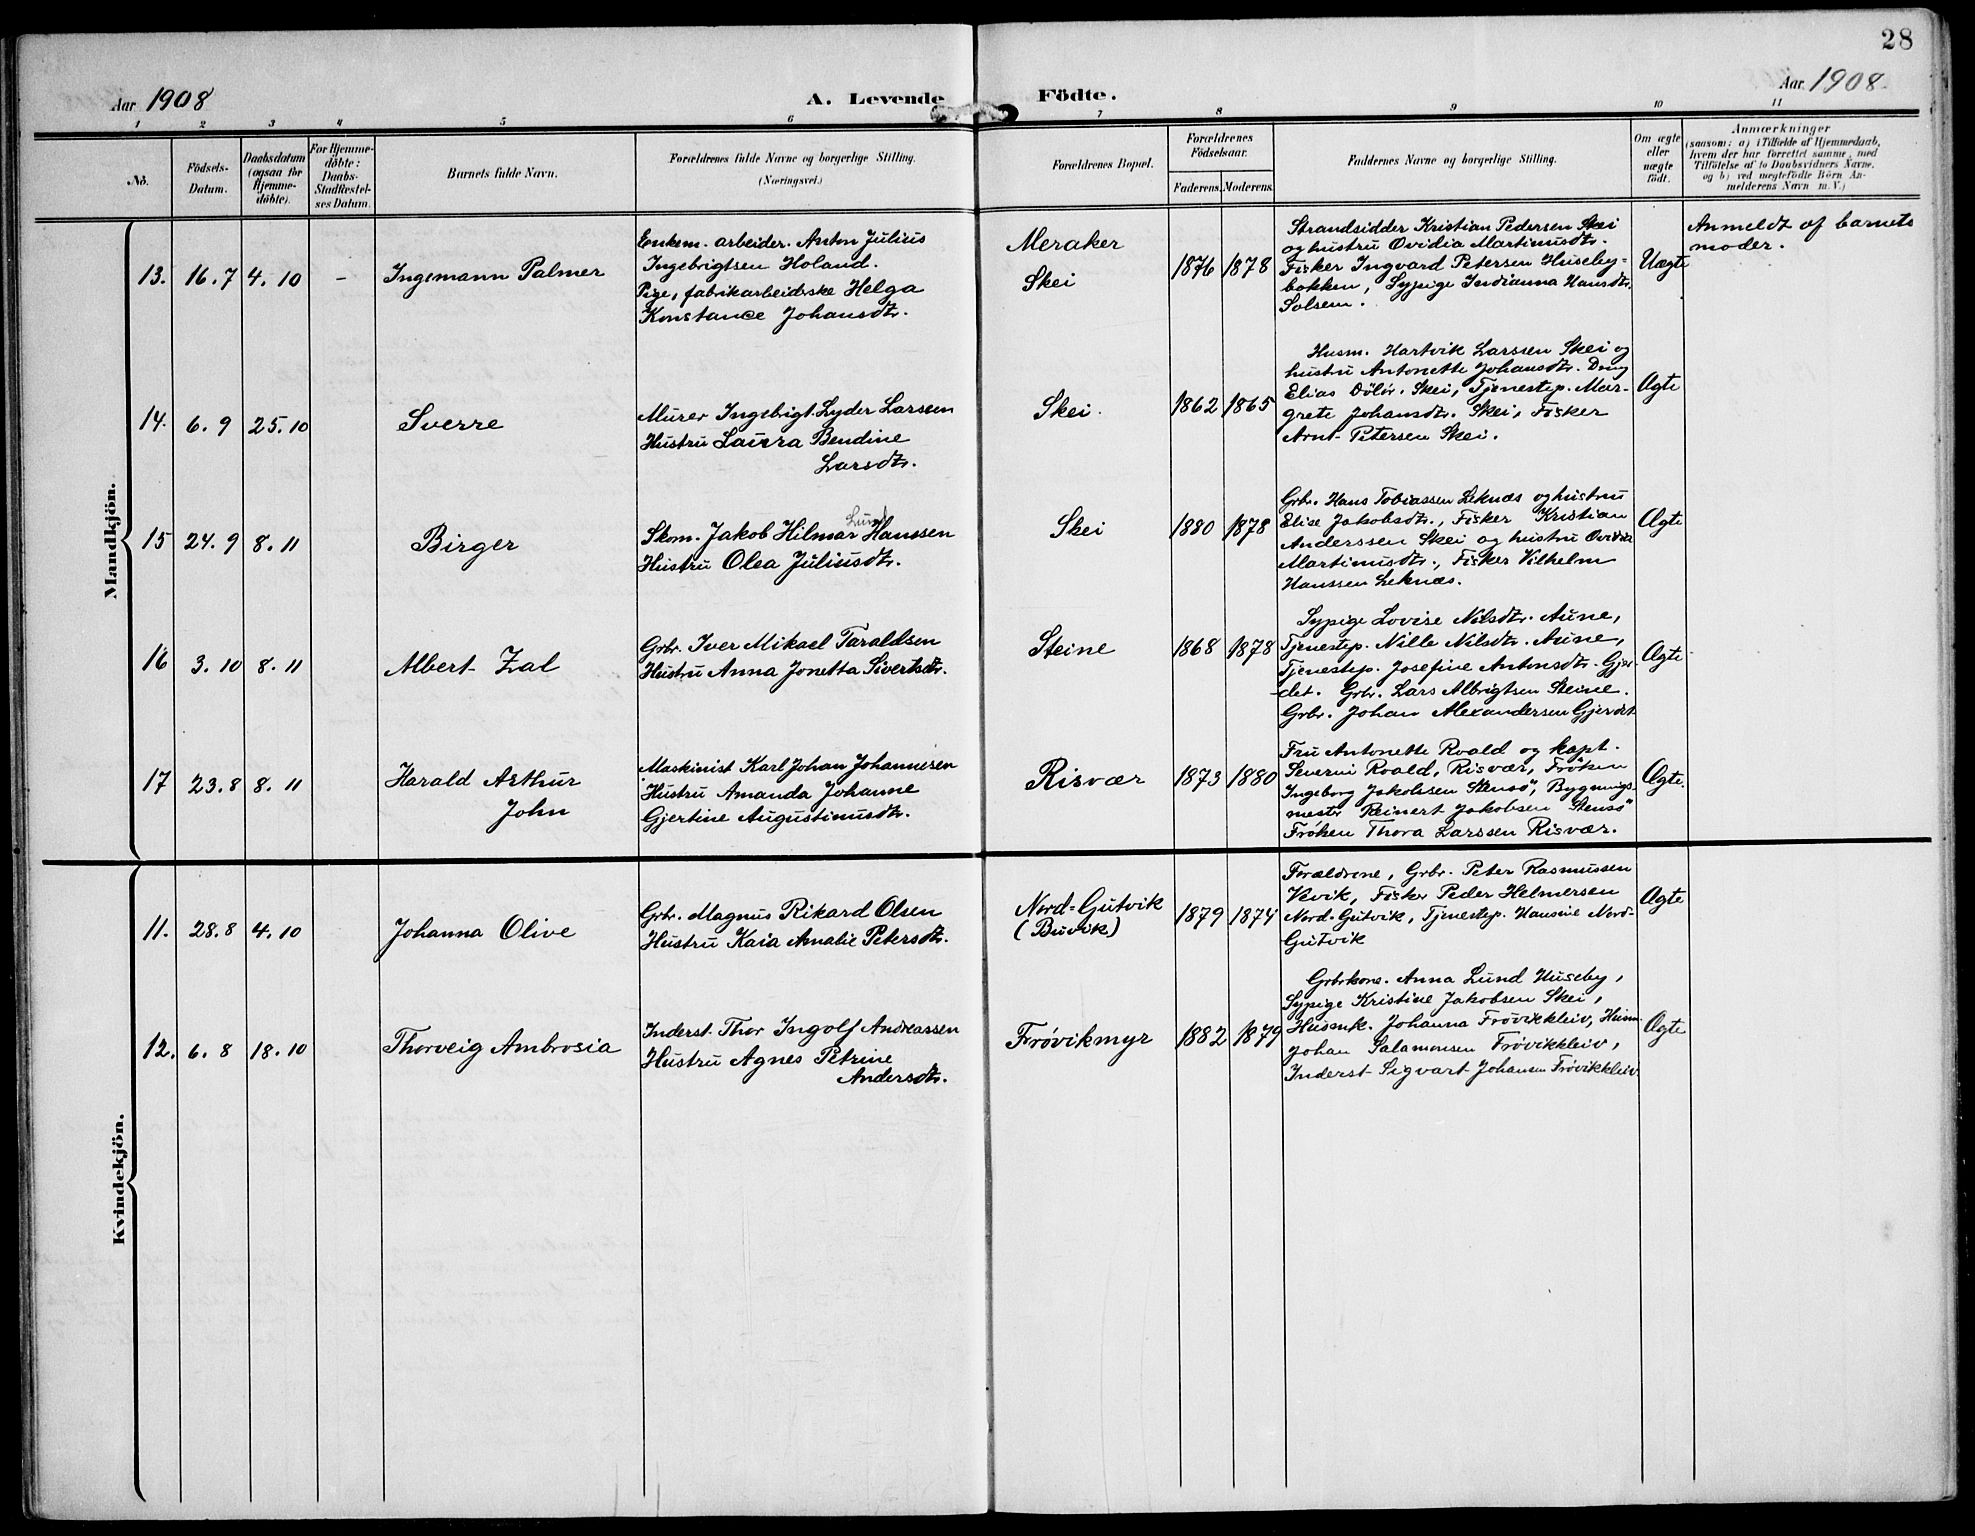 28
Aar 1908
A. Levende
Födte.
Aar 1908.
1 2 3 4 5 6 7 8 9 10 11
No.
Födsels-
Datum.
Daabsdatum
(ogsaa for
Hjemme-
döbte).
For Hjemme-
döbte:
Daabs-
Stadfæstel-
ses Datum.
Barnets fulde Navn.
Forældrenes fulde Navne og borgerlige Stilling.
(Næringsvei.)
Forældrenes Bopæl.
Forældrenes
Födselsaar.
Faderens. Moderens.
Faddernes Navne og borgerlige Stilling.
Om ægte
eller
uægte
födt.
Anmærkninger
(saasom: a) i Tilfælde af Hjemmedaab,
hvem der har forrettet samme, med
Tilföielse af to Daabsvidners Navne,
og b) ved uegtefödte Börn An-
melderens Navn m. V.)
Mandkjön.
13. 16.7 4.10 -
Ingemann Palmer
arbeider. Anton Julius
Ingebrigtsen Holand.
Pige, fabrikarbeiderske Helga
Konstance Johansdtr.
Meraker
Skei
1876 1878
Strandsidder Kristian Pedersen Skei
og hustru Ovidia Martinusdtr.
Fisker Ingvard Petersen Huseby-
bakken, Sypige Indianna Hansdtr.
Solsem.
Uægte
Anmeldt af barnets
moder.
14. 6.9 25.10
Sverre
Murer Ingebrigt Lyder Larssen
Hustru Laura Bendine
Larsdtr.
Skei.
1862 1865
Husm. Hartvik Larssen Skei og
hustru Antonette Johansdtr. Dreng
Elias Skei, Tjenestep. Mar-
grete Johansdtr. Skei, Fisker
Arnt Petersen Skei.
Ægte
15 24.9 8.11
Birger
Lund
Skom. Jakob Hilmar Hanssen
Hustru Olea Juliusdtr.
Skei
1880 1878
Grbr. Hans Tobiassen Leknæs og hustru
Elise Jakobsdtr., Fisker Kristian
Anderssen Skei og hustru Ovidia
Martinusdtr., Fisker Vilhelm
Hanssen Leknæs.
Ægte
16 3.10 8.11
Albert Zal
Grbr. Iver Mikael Taraldsen
Hustru Anna Jonetta Sivertsdtr.
Steine
1868 1878
Sypige Lovise Nilsdtr. Aune,
Tjenestep. Nille Nilsdtr. Aune,
Tjenestep. Josefine Antonsdtr. Gjer-
det. Grbr. Lars Albrigtsen Steine.
Grbr. Johan Alexandersen Gjerdet
Ægte
17 23.8 8.11
Harald Arthur
John
Maskinist Karl Johan Johannesen
Hustru Amanda Johanne
Gjertine Augustinusdtr.
Risvær
1873 1880
Fru Antonette Roald og kapt.
Severin Roald, Risvær, Frøken
Ingeborg Jakobsen Stensö, Bygnings-
mester Reinert Jakobsen Stensö
Frøken Thora Larssen Risvær.
Ægte.
Kvindekjön.
11. 28.8 4.10
Johanna Olive
Grbr. Magnus Rikard Olsen
Hustru Kaia Amalie Petersdtr.
Nord-Gutvik
(Buvik)
1879 1874
Forældrene, Grbr. Peter Rasmussen
Vevik, Fisker Peder Helmersen
Nord-Gutvik, Tjenestep. Hansine Nord-
Gutvik
Ægte
12. 6.8 18.10
Thorveig Ambrosia
Inderst. Thor Ingolf Andreassen
Hustru Agnes Petrine
Andersdtr.
Frøvikmyr
1882 1879
Grbrkone. Anna Lund Huseby,
Sypige Kristine Jakobsen Skei,
Husmk. Johanna Frøvikkleiv, Husm.
Johan Salamonsen Frøvikkleiv,
Inderst Sigvart Johansen Frøvikkleiv
Ægte